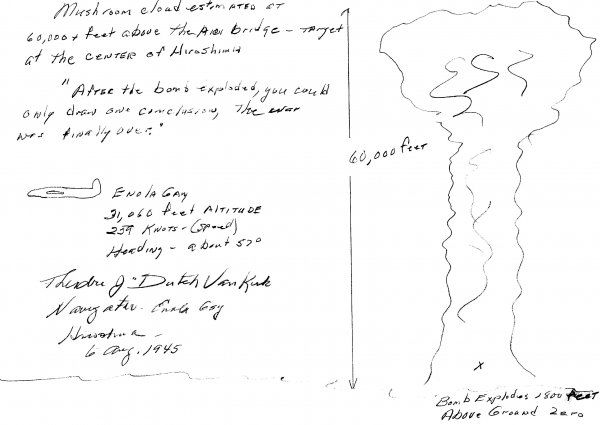 Mushroom cloud estimated at
60,000+ feet above the Aioi bridge - target
at the center of Hiroshima
"After the bomb exploded, you could
only draw one conclusion, the war
was finally over."
60,000 feet
Enola Gay
31,060 feet ALTITUDE
Knots - (speed)
Heading - about
Theodore J "Dutch" Van Kirk
Navigator - Enola Gay
Hiroshima -
6 Aug, 1945
x
Bomb Explodes 1800 feet
Above Ground Zero